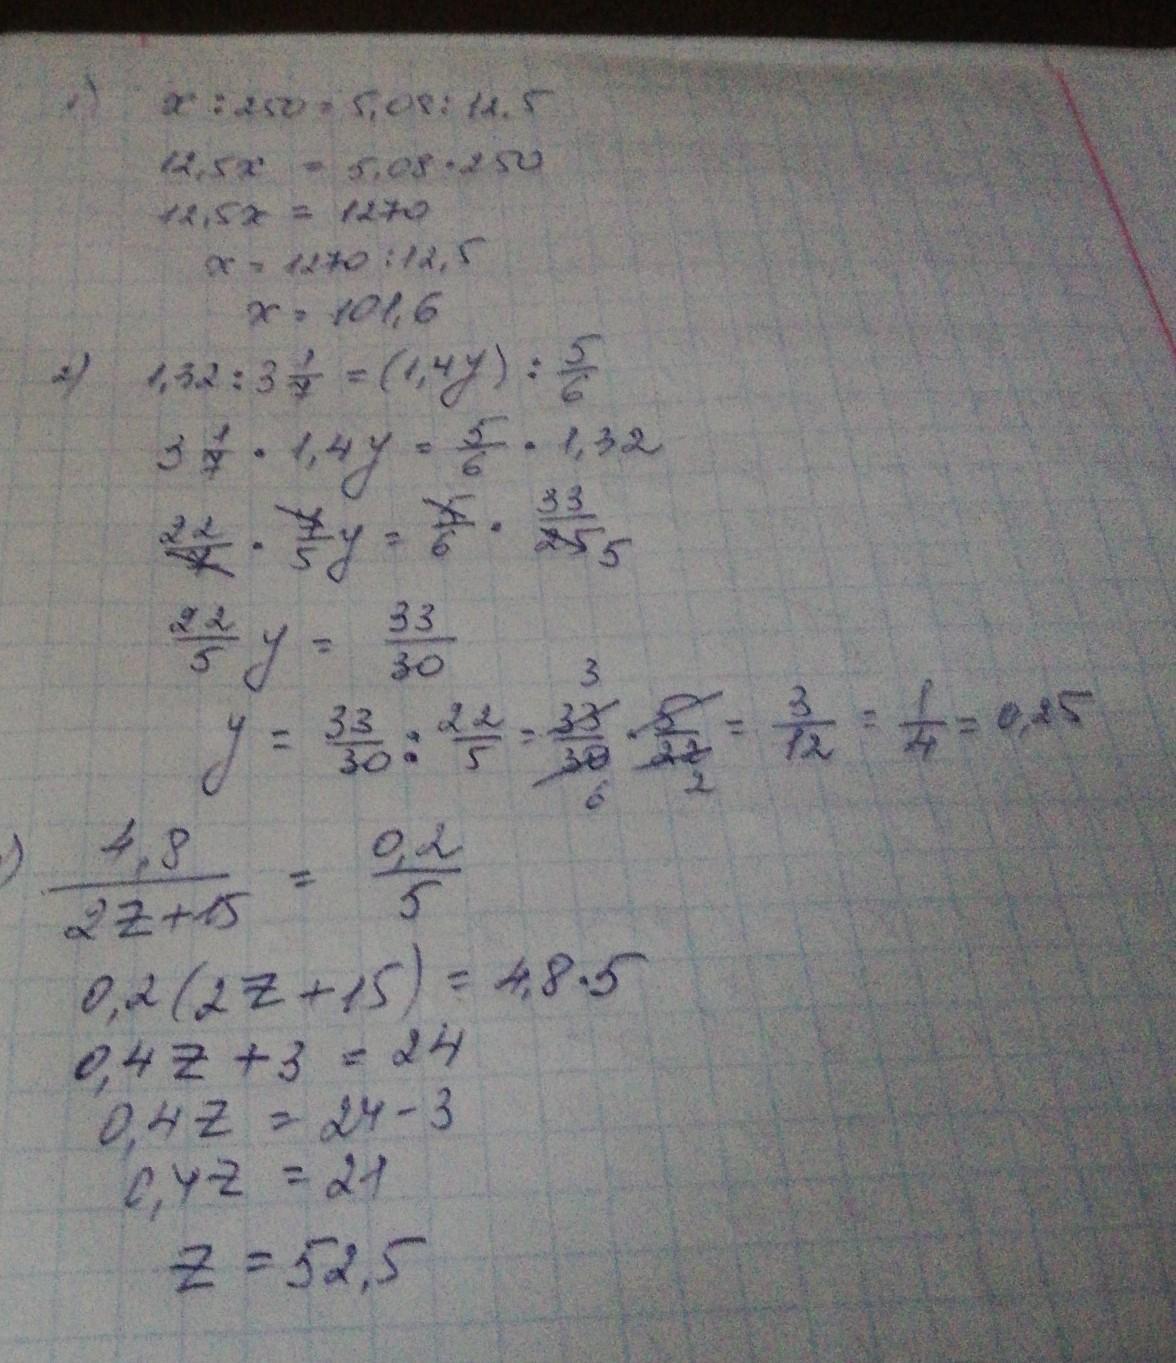 1) x : 250 = 5,08 : 12,5
12,5x = 5,08 · 250
12,5x = 1270
x = 1270 : 12,5
x = 101,6
2) 1,32 : 3 1/7 = (1,4y) : 5/6
3 1/7 · 1,4y = 5/6 · 1,32
22/7 · 7/5 y = 5/6 · 33/25 5
22/5 y = 33/30
y = 33/30 : 22/5 = 33/30 3 6 · 5/22 2 = 3/12 = 1/4 = 0,25
) 4,8/(2z+15) = 0,2/5
0,2(2z+15) = 4,8·5
0,4z + 3 = 24
0,4z = 24-3
0,4z = 21
z = 52,5